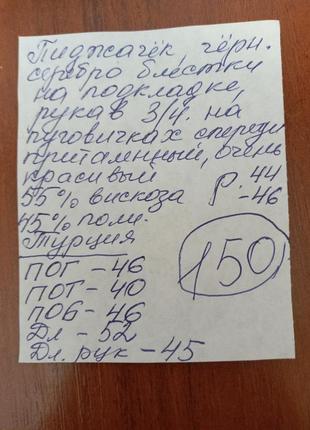 Пиджачёк, чёрн.
серебро блёстки
на подкладке,
рукав 3/4. на
пуговичках спереди
приталенный, очень
красивый
55% вискоза р. 44
45% поли. -46
Турция
150
ПОГ - 46
ПОТ - 40
ПОБ - 46
Дл - 52
Дл. рук - 45